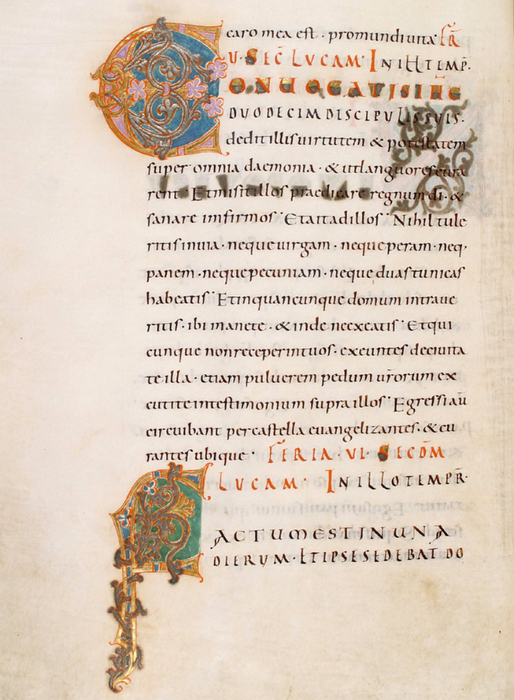 caro mea est · promundi uita FR̄
U · SEC̄ LUCAM · IN ILL TEMP̄R·
CONUOCATIS IH̄C
DUODECIM DISCIPULIS SUIS·
dedit illis uirtutem & potestatem
super omnia daemonia · & utlanguores cura
rent · Et misit illos praedicare regnum dī · &
sanare infirmos · Et ait ad illos · Nihil tule
ritis inuia · neque uirgam · neque peram · neq·
panem · neque pecuniam · neque duas tunicas
habeatis · Et in quamcunque domum intraue
ritis · ibi manete · & inde ne exeatis · Et qui
cunque non receperint uos · exeuntes de ciuita
te illa · etiam puluerem pedum ūrorum ex
cutite intestimonium supra illos · Egressi aū
circuibant per castella euangelizantes · & cu
rantes ubique · FERIA · VI · SECDM̄
LUCAM · IN ILLO TEMP̄R·
FACTUM EST IN UNA
DIERUM · ET IPSE SEDEBAT DO